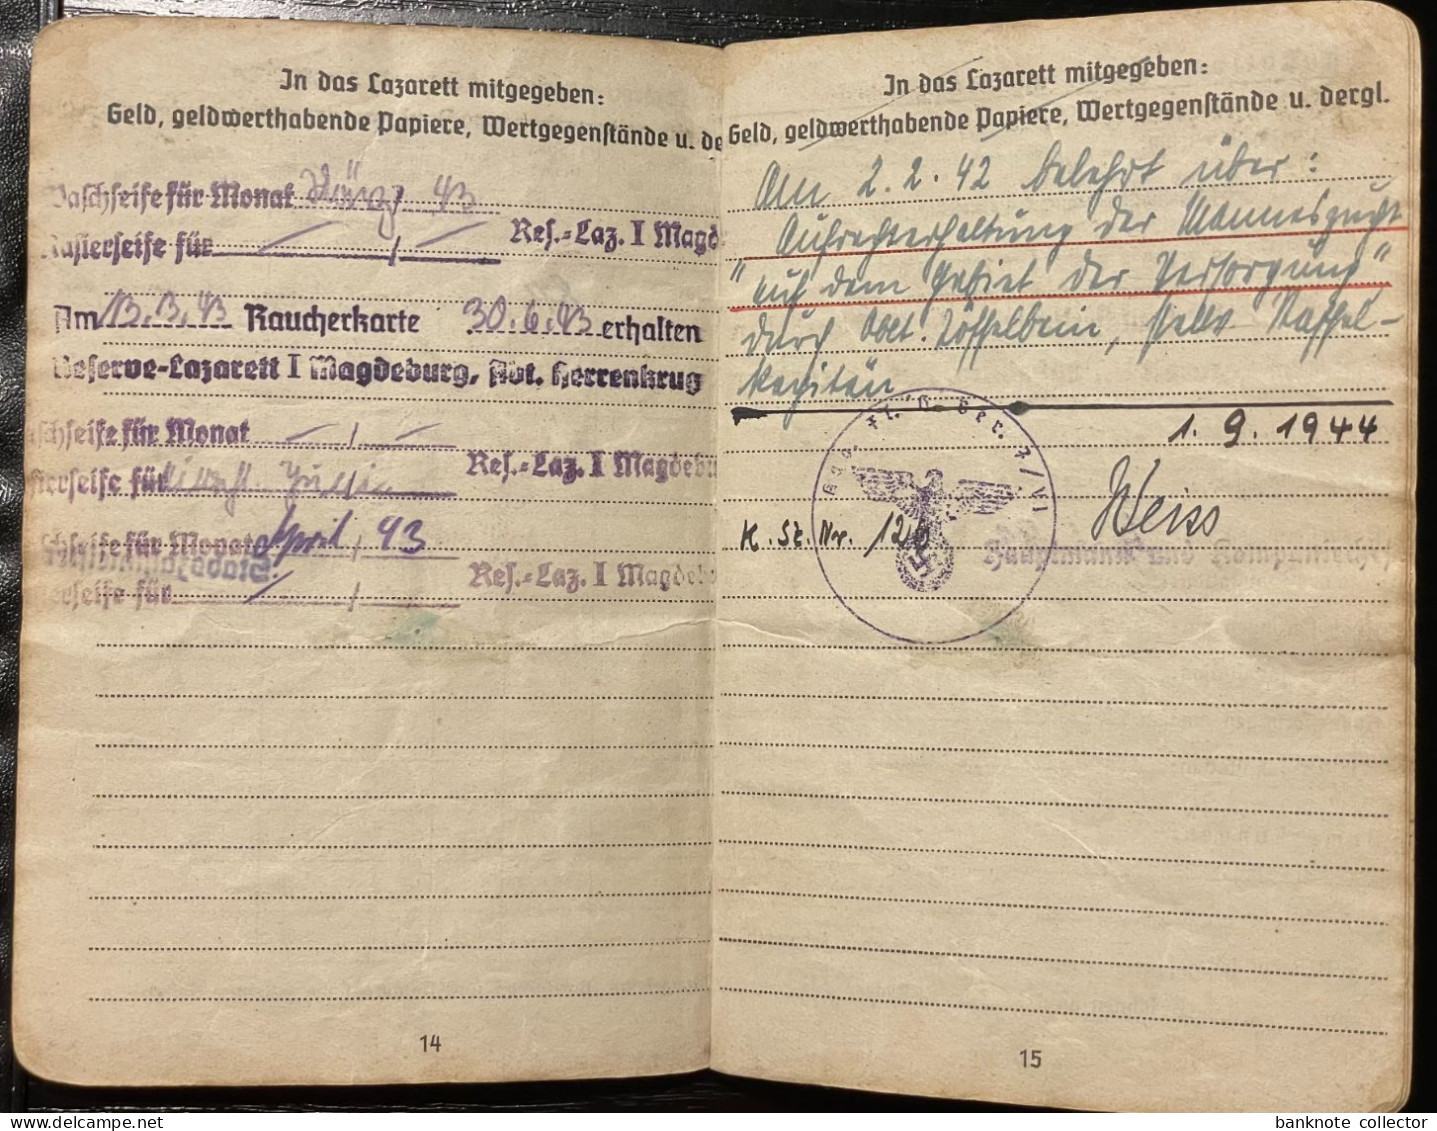 In das Lazarett mitgegeben:
Geld, geldwerthabende Papiere, Wertgegenstände u. de
Waschseife für Monat März 43
Rasierseife für
Res.-Laz. I Magd
Am 13.3.43 Raucherkarte 30.6.43 erhalten
Reserve-Lazarett I Magdeburg, Abt. Herrenkrug
schseife für Monat
Res.-Laz. I Magdebu
sierseife für
schseife für Monat April 43
Res.-Laz. I Magdebu
erseife für
14
In das Lazarett mitgegeben:
Geld, geldwerthabende Papiere, Wertgegenstände u. dergl.
Am 2.2.42 belehrt über:
Aufrechterhaltung der Manneszucht
"auf dem Gebiet der Versorgung"
durch Oblt. Löffelbein, stellv. Staffel-
kapitän
1.9.1944
Weiss
K. St. Nr. 120
Hauptmann und Kompaniechef
15
banknote collector